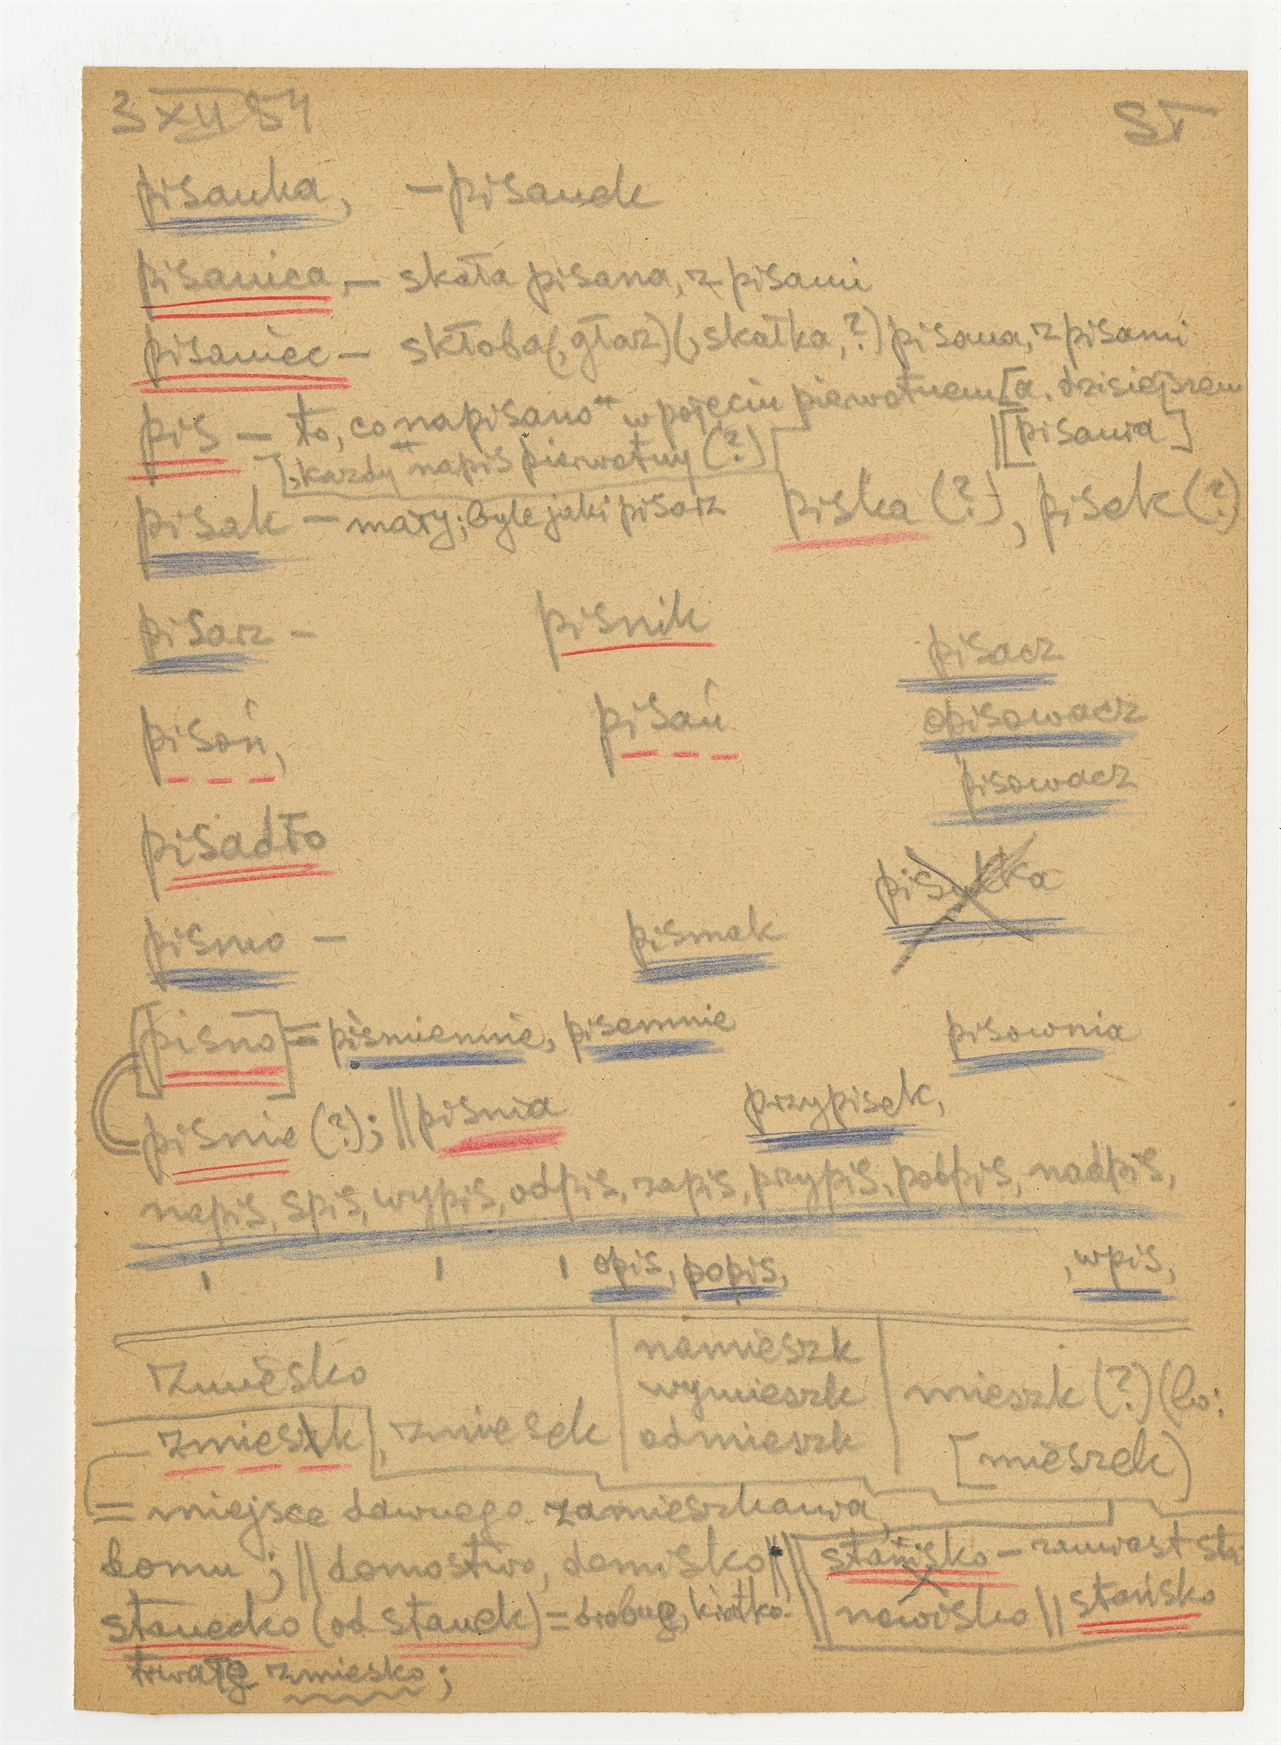 3 XII 54 ST
pisanka, – pisanek
pisanica – skała pisana, z pisami
pisaniec – skłoba (, głaz) (, skałka, ?) pisana, z pisami
pis – to, co napisano" w pojęciu pierwotnem [a. dzisiejszem
[, każdy napis pierwotny (?) || [pisania]
pisak – mały; byle jaki pisarz piska (?), pisek (?)
pisarz – piśnik pisacz
pisoń, pisań opisowacz
pisowacz
pisadło
pisułka
pismo – pismak
[pisno] = piśmiennie, pisemnie pisownia
piśnie (?); || piśnia przypisek,
napis, spis, wypis, odpis, zapis, przypis, podpis, nadpis,
opis, popis, , wpis,
zmiesko namieszk
wymieszk mieszk (?) (bo:
zmieszk, zmiesek odmieszk [mieszek)
= miejsce dawnego zamieszkania,
domu ; || domostwo, domisko || stanisko – zamiast sta
stanedko (od stanek) = drobne, krótko- || nowisko || stańsko
trwałe zmiesko;